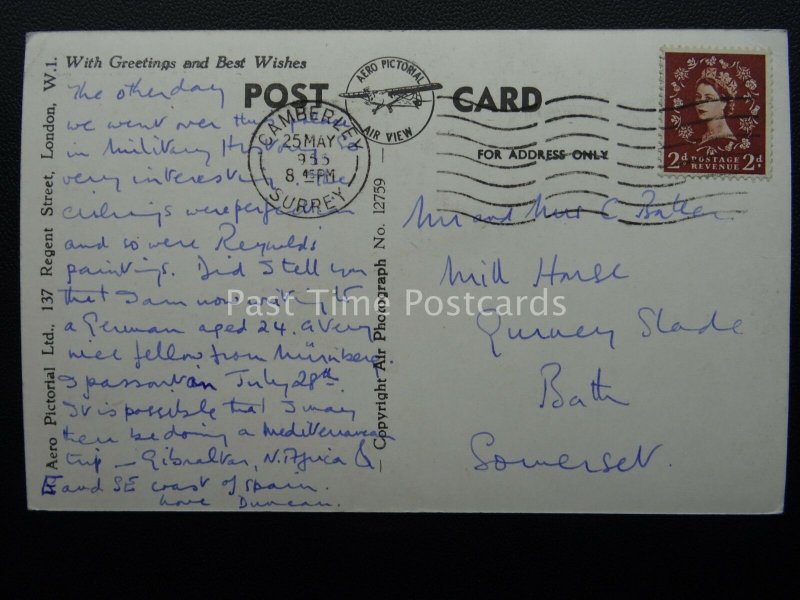 With Greetings and Best Wishes
POST CARD
AERO PICTORIAL
AIR VIEW
FOR ADDRESS ONLY
CAMBERLEY
25 MAY
8 45 PM
SURREY
2d POSTAGE REVENUE 2d
Aero Pictorial Ltd., 137 Regent Street, London, W.1.
Copyright Air Photograph No. 12759
The other day
we went over the
in Military
very interesting. The
ceilings were perfection
and so were Reynolds
paintings. Did I tell you
that I am now writing to
a German aged 24. a very
nice fellow from Nürnberg.
I pass out on July 28th.
It is possible that I may
then be doing a Mediterranean
trip – Gibraltar, N. Africa &
E and SE coast of Spain.
Love Duncan.
Mr and Mrs C Baker
Mill House
Gurney Slade
Bath
Somerset.
Past Time Postcards